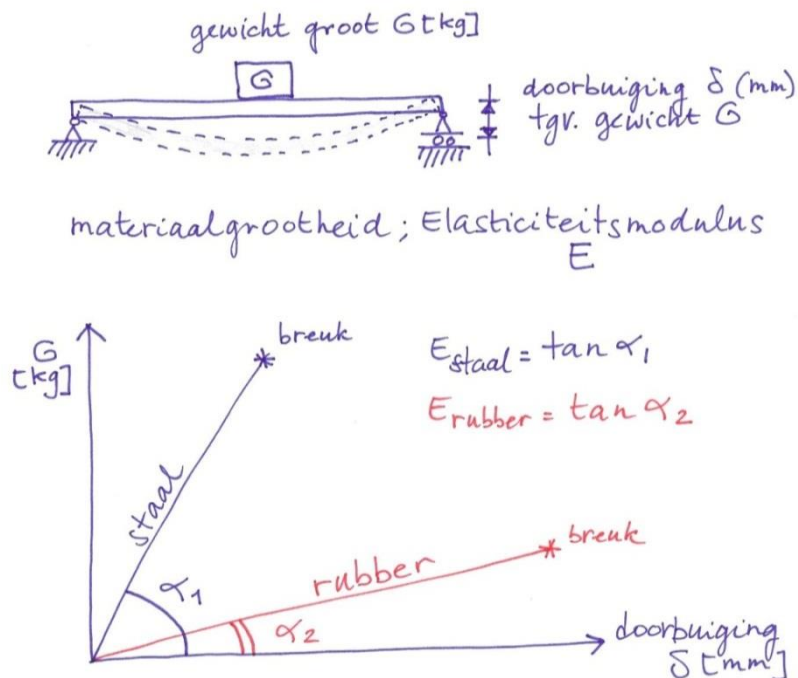 gewicht groot G[kg]
G
doorbuiging δ (mm)
tgv. gewicht G
materiaalgrootheid ; Elasticiteitsmodulus
E
G
[kg]
breuk
E staal = tan α1
E rubber = tan α2
staal
α1
rubber
breuk
α2
doorbuiging
δ [mm]